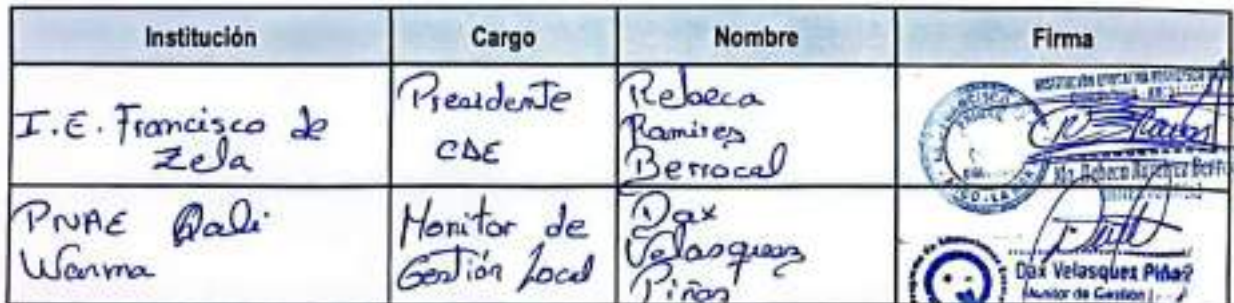 Institución Cargo Nombre Firma
I.E. Francisco de
Zela
Presidente
CAE
Rebeca
Ramirez
Berrocal
PNAE Qali
Warma
Monitor de
Gestión Local
Dax
Velasquez
Piñas
Dax Velasques Piñas
Monitor de Gestión